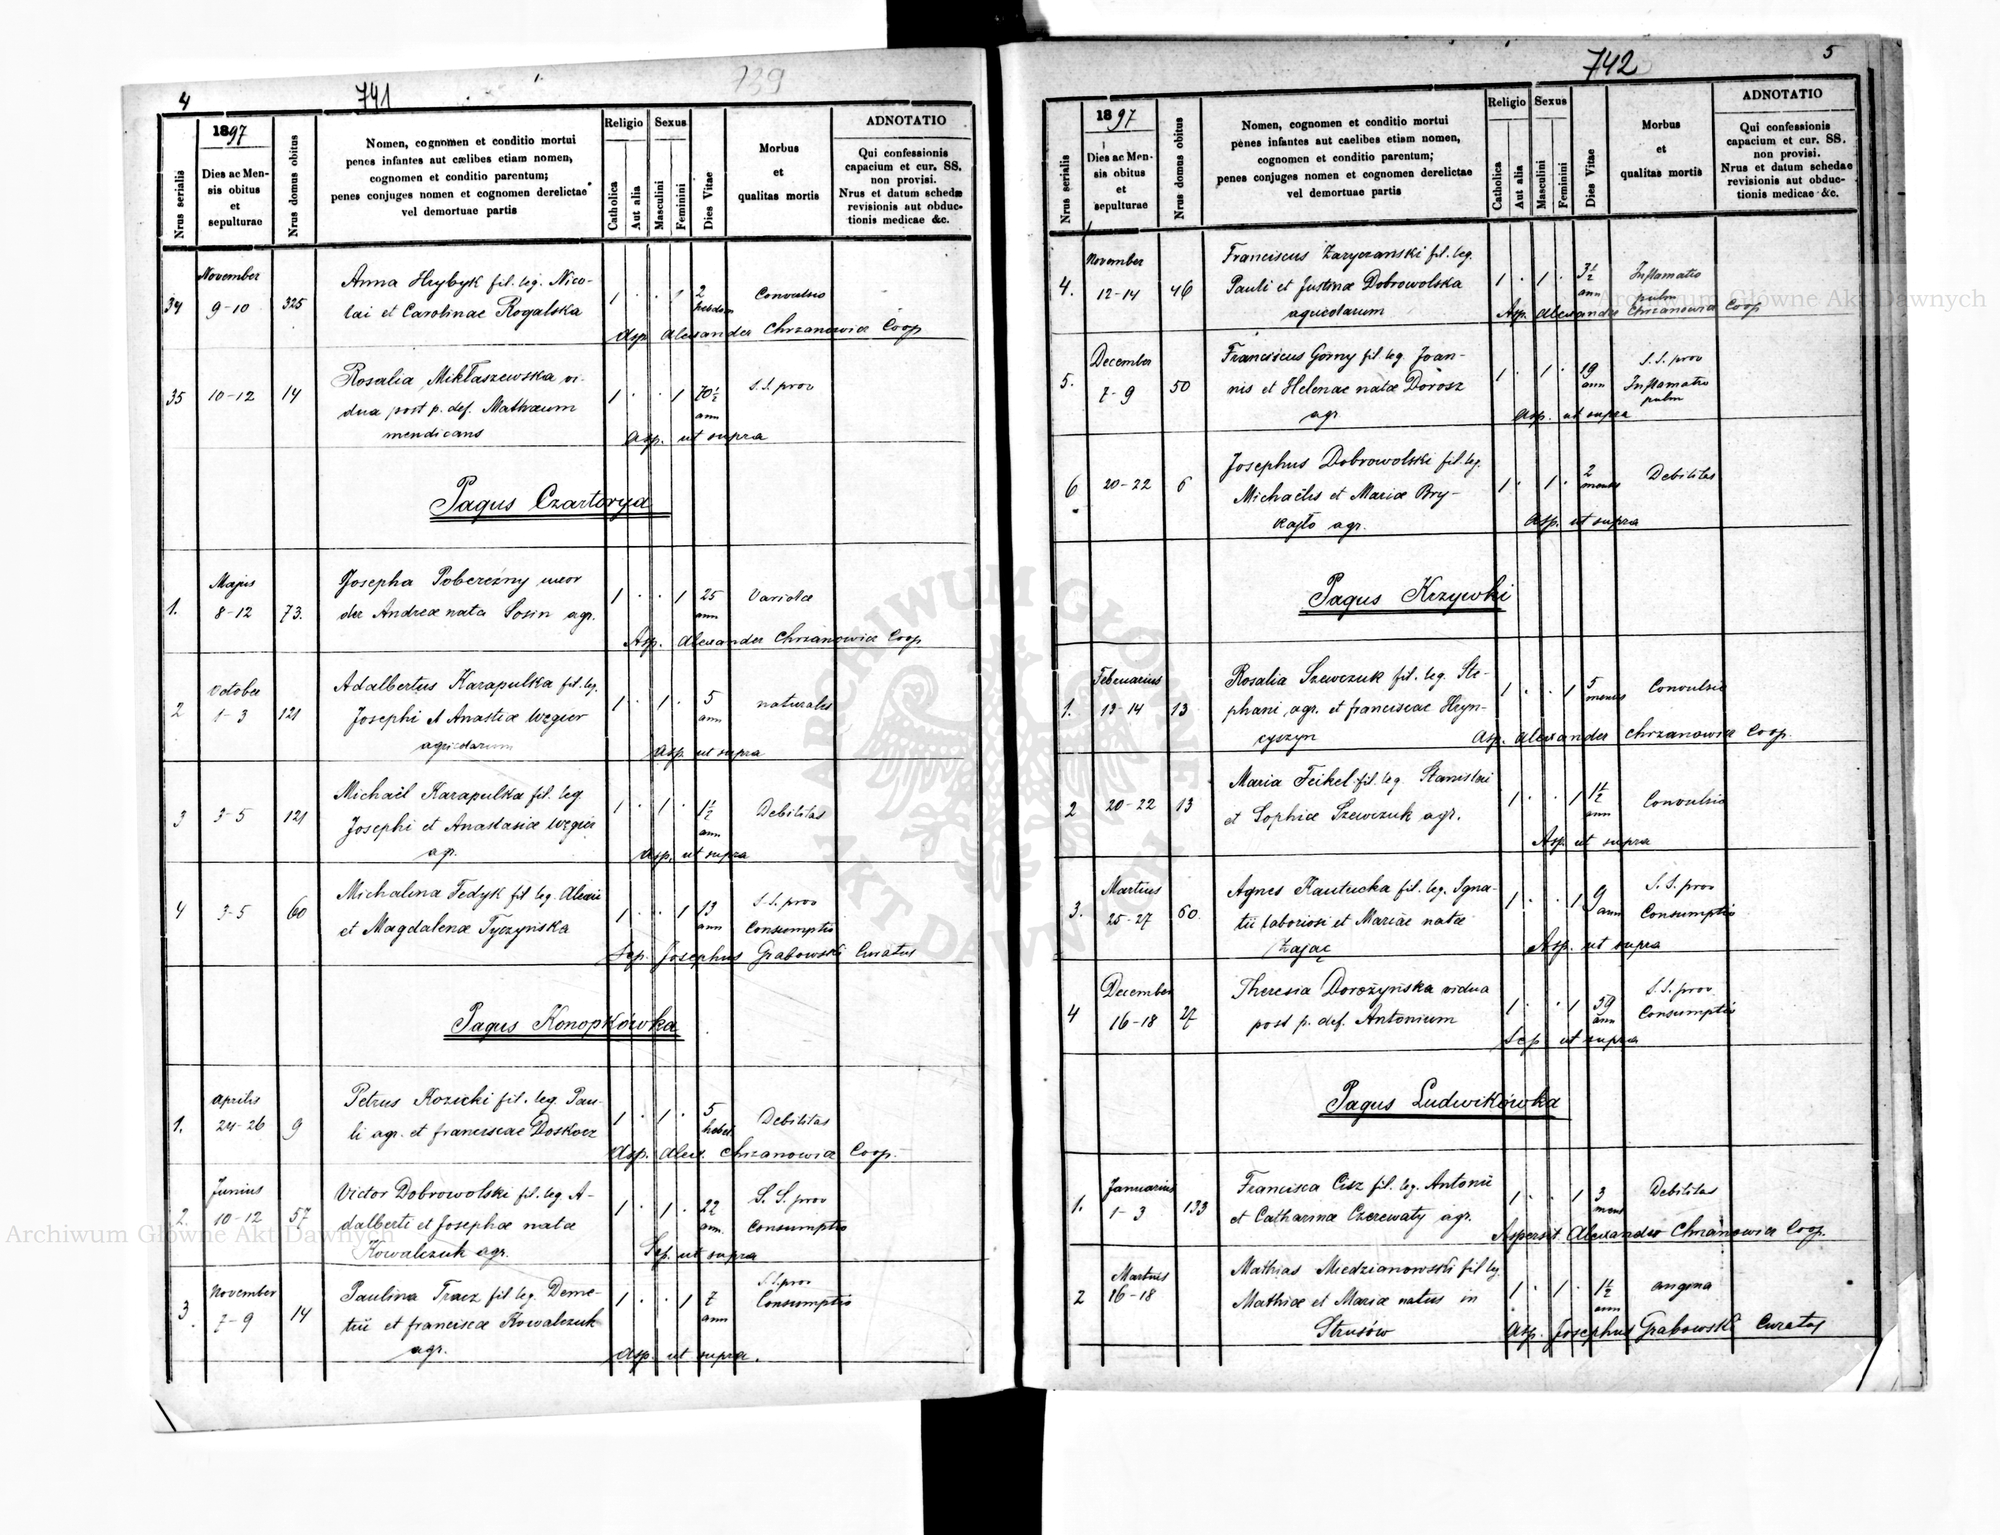 4
741
739
1897
Nrus serialis
Dies ac Men-
sis obitus
et
sepulturae
Nrus domus obitus
Nomen, cognomen et conditio mortui
penes infantes aut cælibes etiam nomen,
cognomen et conditio parentum;
penes conjuges nomen et cognomen derelictae
vel demortuae partis
Religio
Catholica
Aut alia
Sexus
Masculini
Feminini
Dies Vitae
Morbus
et
qualitas mortis
ADNOTATIO
Qui confessionis
capacium et cur. SS.
non provisi.
Nrus et datum schedæ
revisionis aut obduc-
tionis medicae &c.
November
34 9-10 325 Anna Hrybyk fil. leg. Nico- 1 . . 1 2 hebdom Convulsio
lai et Carolinae Rogalska
Asp. Alexander Chrzanowicz Coop
35 10-12 14 Rosalia Mikłaszewska vi- 1 . . 1 70½ ann S.S. prov
dua post p. def. Mathæum
mendicans
Asp. ut supra
Pagus Czartorya
Majus
1. 8-12 73. Josepha Pobereźny uxor 1 . . 1 25 ann Variolæ
Andreæ nata Sosin agr.
Asp. Alexander Chrzanowicz Coop
October
2 1-3 121 Adalbertus Karapulka fil. leg. 1 . 1 . 5 ann naturalis
Josephi et Anastiæ Węgier
agricolarum
Asp. ut supra
3 3-5 121 Michaël Karapulka fil. leg. 1 . 1 . 1½ ann Debilitas
Josephi et Anastasiæ Węgier
agr.
Asp. ut supra
4 3-5 60 Michalina Fedyk fil. leg. Alexii 1 . . 1 13 ann S.S. prov
et Magdalenæ Tyczyńska Consumptio
Sep. Josephus Grabowski Curatus
Pagus Konopkówka
Aprilis
1. 24-26 9 Petrus Kozicki fil. leg. Pau- 1 . 1 . 5 hebd. Debilitas
li agr. et franciscae Doskocz
Asp. Alex. Chrzanowicz Coop.
Junius
2. 10-12 57 Victor Dobrowolski fil. leg. A- 1 . 1 . 22 ann. S.S. prov
dalberti et Josephæ natæ Consumptio
Kowalczuk agr.
Sep. ut supra
November
3. 7-9 14 Paulina Tracz fil. leg. Deme- 1 . . 1 7 ann S.S. prov
trii et franciscæ Kowalczuk Consumptio
agr.
Asp. ut supra.
5
742
1897
Nrus serialis
Dies ac Men-
sis obitus
et
sepulturae
Nrus domus obitus
Nomen, cognomen et conditio mortui
penes infantes aut caelibes etiam nomen,
cognomen et conditio parentum;
penes conjuges nomen et cognomen derelictae
vel demortuae partis
Religio
Catholica
Aut alia
Sexus
Masculini
Feminini
Dies Vitae
Morbus
et
qualitas mortis
ADNOTATIO
Qui confessionis
capacium et cur. SS.
non provisi.
Nrus et datum schedae
revisionis aut obduc-
tionis medicae &c.
November
4. 12-14 46 Franciscus Zaryczanski fil. leg. 1 . 1 . 3½ ann Inflamatio
Pauli et Justinæ Dobrowolska pulm
agricolarum
Asp. Alexander Chrzanowicz Coop
December
5. 7-9 50 Franciscus Górny fil. leg. Joan- 1 . 1 . 19 ann S.S. prov
nis et Helenae natæ Dorosz Inflamatio
agr. pulm
Asp. ut supra
6 20-22 6 Josephus Dobrowolski fil. leg. 1 . 1 . 2 menses Debilitas
Michaëlis et Mariæ Bry-
kajło agr.
Asp. ut supra
Pagus Krzywki
Februarius
1. 12-14 13 Rosalia Szewczuk fil. leg. Ste- 1 . . 1 5 menses Convulsio
phani agr. et franciscae Hryn-
cyszyn
Asp. Alexander Chrzanowicz Coop.
2 20-22 13 Maria Feikel fil. leg. Stanislai 1 . . 1 1½ ann Convulsio
et Sophiæ Szewczuk agr.
Asp ut supra
Martius
3. 25-27 60 Agnes Kautucka fil. leg. Igna- 1 . . 1 9 ann S.S. prov
tii laboriosi et Mariae natæ Consumptio
Zając
Asp. ut supra
December
4 16-18 27 Theresia Dorożyńska vidua 1 . . 1 59 ann S.S. prov
post p. def. Antonium Consumptio
Sep. ut supra
Pagus Ludwikówka
Januarius
1. 1-3 133 Francisca Cisz fil. leg. Antonii 1 . . 1 3 mens Debilitas
et Catharinæ Czerewaty agr.
Aspersit Alexander Chrzanowicz Coop.
Martius
2 16-18 Mathias Miedzianowski fil leg. 1 . 1 . 1½ ann angina
Mathiæ et Mariæ natus in
Strusów
Asp. Josephus Grabowski Curatus
Archiwum Główne Akt Dawnych
Archiwum Główne Akt Dawnych
ARCHIWUM GŁÓWNE AKT DAWNYCH